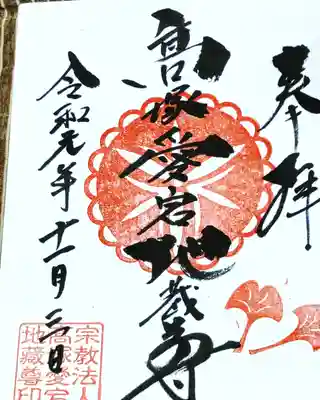 奉拝
高塚愛宕地蔵尊
令和元年十一月三日
宗教法人
高塚愛宕
地蔵尊印